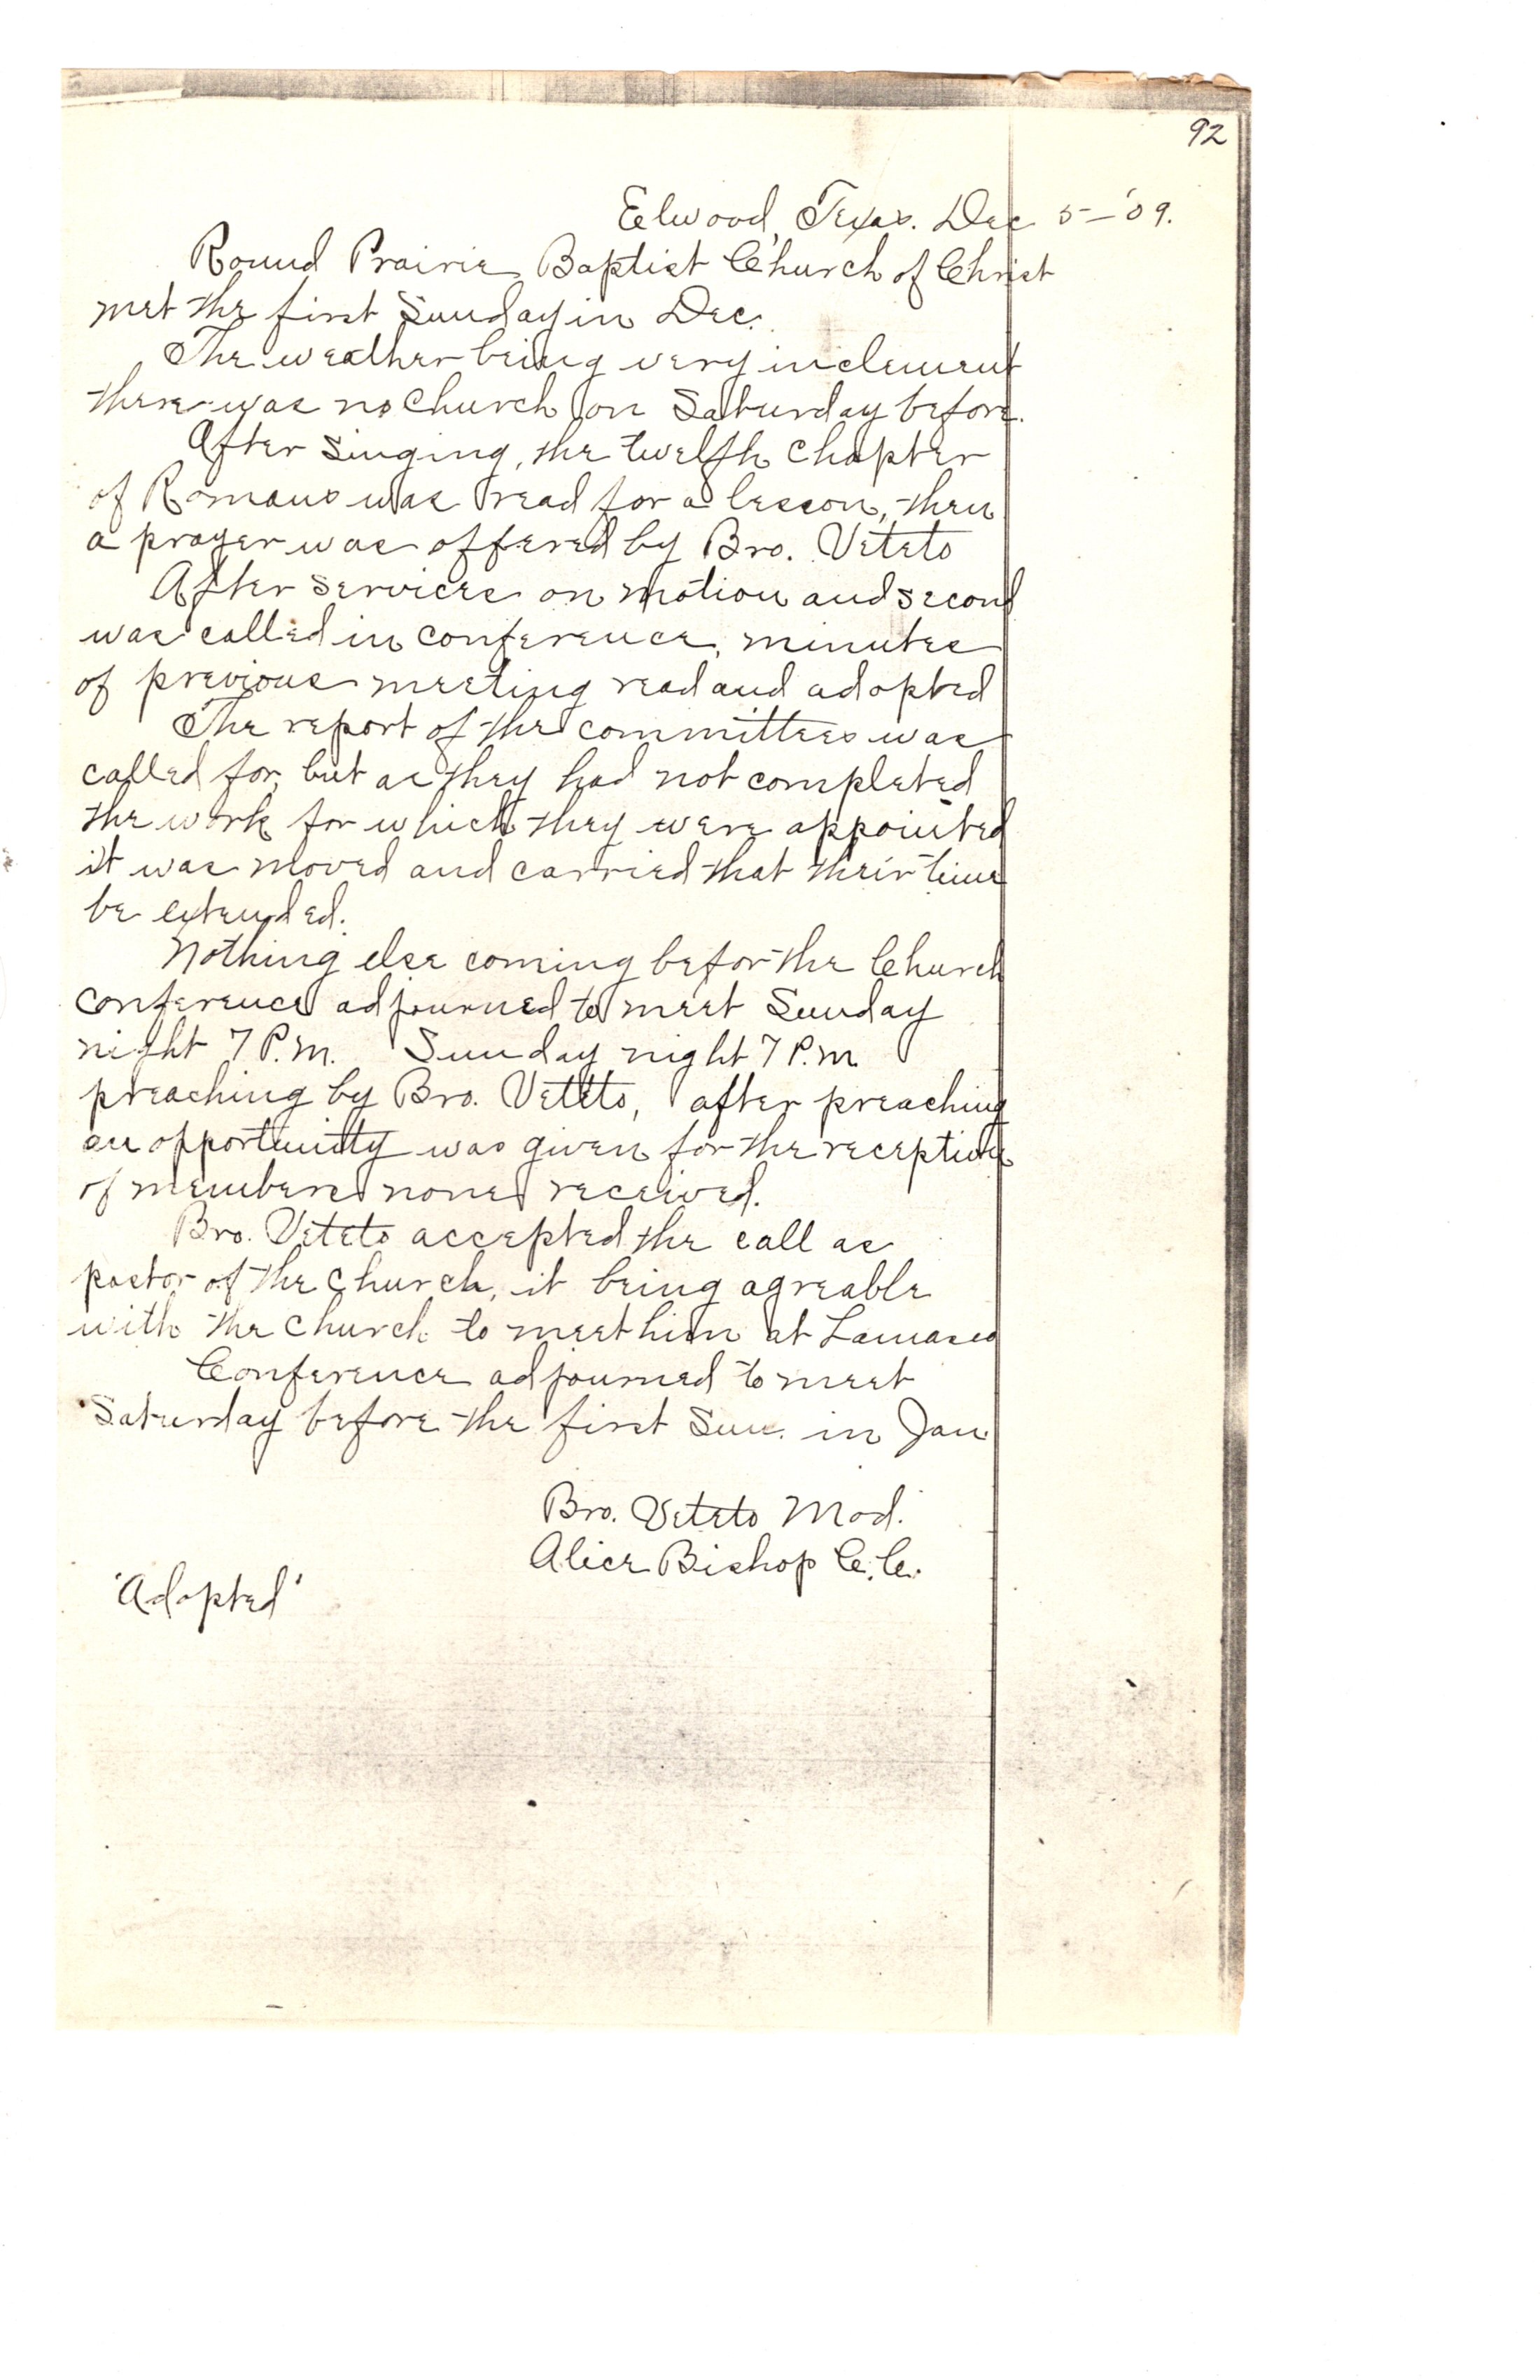 92
Elwood, Texas. Dec 5-'09.
Round Prairie Baptist Church of Christ
met the first Sunday in Dec.
The weather being very inclement
there was no Church on Saturday before.
After singing, the twelfth Chapter
of Romans was read for a lesson, then
a prayer was offered by Bro. Veteto
After services on motion and second
was called in conference, minutes
of previous meeting read and adopted
The report of the committees was
called for, but as they had not completed
the work for which they were appointed
it was moved and carried that their time
be extended.
Nothing else coming befor the Church
conference adjourned to meet Sunday
night 7 P.m. Sunday night 7 P.m
preaching by Bro. Veteto, after preaching
an opportunity was given for the reception
of members none received.
Bro. Veteto accepted the call as
pastor of the church, it being agreable
with the church to meet him at Lamasco
Conference adjourned to meet
Saturday before the first Sun. in Jan.
Bro. Veteto Mod.
Alice Bishop C.C.
'Adopted'